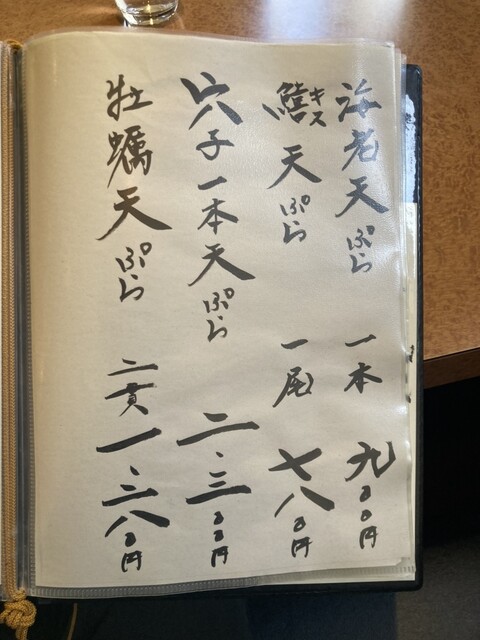 海老天ぷら 一本 九〇〇円
鱚キス天ぷら 一尾 七八〇円
穴子一本天ぷら 二、三〇〇円
牡蠣天ぷら 二貫 一、三八〇円